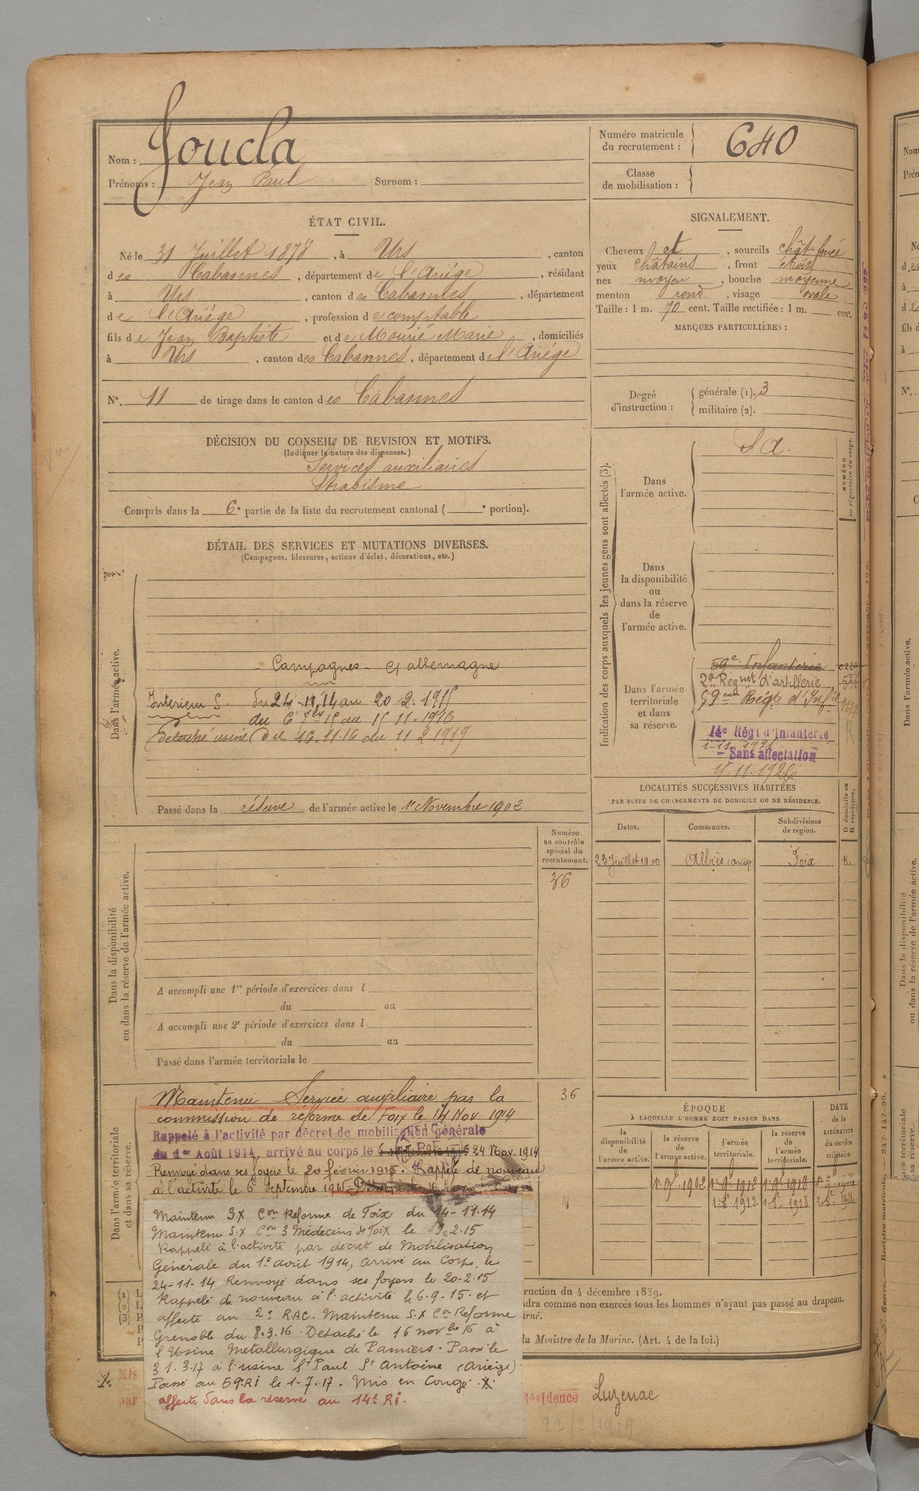 Nom : Joucla
Prénoms : Jean Paul Surnom :
Numéro matricule du recrutement : 640
Classe de mobilisation :
ÉTAT CIVIL.
Né le 31 Juillet 1878, à Urs, canton
des Cabannes, département de l'Ariége, résidant
à Urs, canton des Cabannes, département
de l'Ariége, profession de comptable
fils de Jean Baptiste et de Mourié Marie, domiciliés
à Urs, canton des Cabannes, département de l'Ariége
N°. 11 de tirage dans le canton des Cabannes
SIGNALEMENT.
Cheveux et, sourcils chât. foncé
yeux châtains, front étroit
nez moyen, bouche moyenne
menton rond, visage ovale
Taille : 1 m. 70 cent. Taille rectifiée : 1 m. cent.
MARQUES PARTICULIÈRES :
Degré d'instruction : générale (1). 3
militaire (2).
DÉCISION DU CONSEIL DE REVISION ET MOTIFS.
(Indiquer la nature des dispenses.)
Services auxiliaires
Strabisme
Compris dans la 6e partie de la liste du recrutement cantonal ( e portion).
DÉTAIL DES SERVICES ET MUTATIONS DIVERSES.
(Campagnes, blessures, actions d'éclat, décorations, etc.)
Dans l'armée active.
Campagnes - C/ allemagne
Intérieur S. du 24-11,14 au 20-2.1915
du 6 7bre 15 au 15 11-1916
Détaché usine du 16.11.16 au 11 2 1919
Passé dans la réserve de l'armée active le 1er Novembre 1902
Indication des corps auxquels les jeunes gens sont affectés (3).
Dans l'armée active.
S A.
Dans la disponibilité ou dans la réserve de l'armée active.
Dans l'armée territoriale et dans sa réserve.
59e Infanterie
2e Régmt d'artillerie
59me Régt d'Infie
14e Régt d'Infanterie
Sans affectation
15.11.1926
NUMÉRO au répertoire du corps.
LOCALITÉS SUCCESSIVES HABITÉES
PAR SUITE DE CHANGEMENTS DE DOMICILE OU DE RÉSIDENCE.
Dates. Communes. Subdivisions de région. D domicile ou R résidence.
23 Juillet 1910 Albiès Foix R.
Numéro au contrôle spécial du recrutement.
36
Dans la disponibilité ou dans la réserve de l'armée active.
A accompli une 1re période d'exercices dans l
du au
A accompli une 2e période d'exercices dans l
du au
Passé dans l'armée territoriale le
Dans l'armée territoriale et dans sa réserve.
36
Maintenu Service auxiliaire par la
commission de réforme de Foix le 14 Nov 1914
Rappelé à l'activité par décret de mobilisation Générale
du 1er Août 1914, arrivé au corps le 24 Nov. 1914
Renvoyé dans ses foyers le 20 février 1915. Rappelé de nouveau
à l'activité le 6 septembre 1915
Maintenu SX Con Réforme de Foix du 14-11-14
Maintenu S.X Con 3 Médecins de Foix le 19.2.15
Rappelé à l'activité par décret de Mobilisation
Générale du 1er août 1914, arrivé au Corps, le
24-11-14 Renvoyé dans ses foyers le 20-2-15
Rappelé de nouveau à l'activité le 6-9-15 et
affecté au 2e RAC. Maintenu S.X Con Réforme
Grenoble du 8.3.16 Détaché le 16 novbre 16 à
l'Usine Métallurgique de Pamiers - Passé le
31.3.17 à l'usine St Paul St Antoine (Ariège)
Passé au 59e RI le 1-7-17. Mis en Congé
affecté dans la réserve au 14e RI.
ÉPOQUE
à LAQUELLE L'HOMME DOIT PASSER DANS
la disponibilité de l'armée active. la réserve de l'armée active. l'armée territoriale. la réserve de l'armée territoriale.
DATE de la LIBÉRATION du service militaire.
1er 9bre 1902
ruction du 4 décembre 1889.
dra comme non exercés tous les hommes n'ayant pas passé au drapeau.
u Ministre de la Marine. (Art. 4 de la loi.)
Résidence Luzenac
22/2/1919